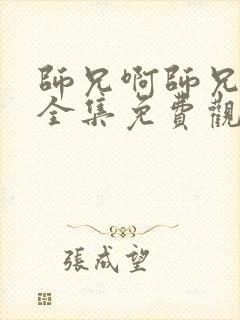 師兄啊師兄
全集免費觀
張成望